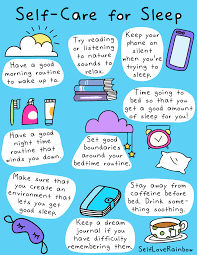 Self-Care for Sleep
Have a good
morning routine
to wake up to.
Try reading
or listening
to nature
sounds to
relax.
Keep your
phone on
silent
when you're
trying to
sleep.
Time going to
bed so that you
get a good
amount of sleep
for you!
Have a
good night
time routine
that winds
you down.
Set good
boundaries
around your
bedtime routine.
Make sure
that you
create an
environment
that lets you
get good
sleep.
Stay away from
caffeine before
bed. Drink some-
thing soothing.
Keep a dream
journal if you
have difficulty
remembering them.
SelfLoveRainbow